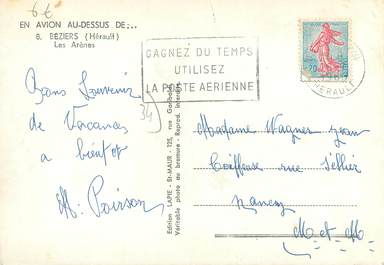 6€
EN AVION AU-DESSUS DE...
6. BEZIERS (Hérault)
Les Arènes
GAGNEZ DU TEMPS
UTILISEZ
LA POSTE AERIENNE
HERAULT
Bons Souvenirs
de Vacances
à bientôt
M. Poirson
34
Edition LAPIE - St-MAUR - 125, rue
Véritable photo au bromure - Reprod. interdite
Madame Wagner Jean
Coiffeuse rue
Nancy
M-et-M